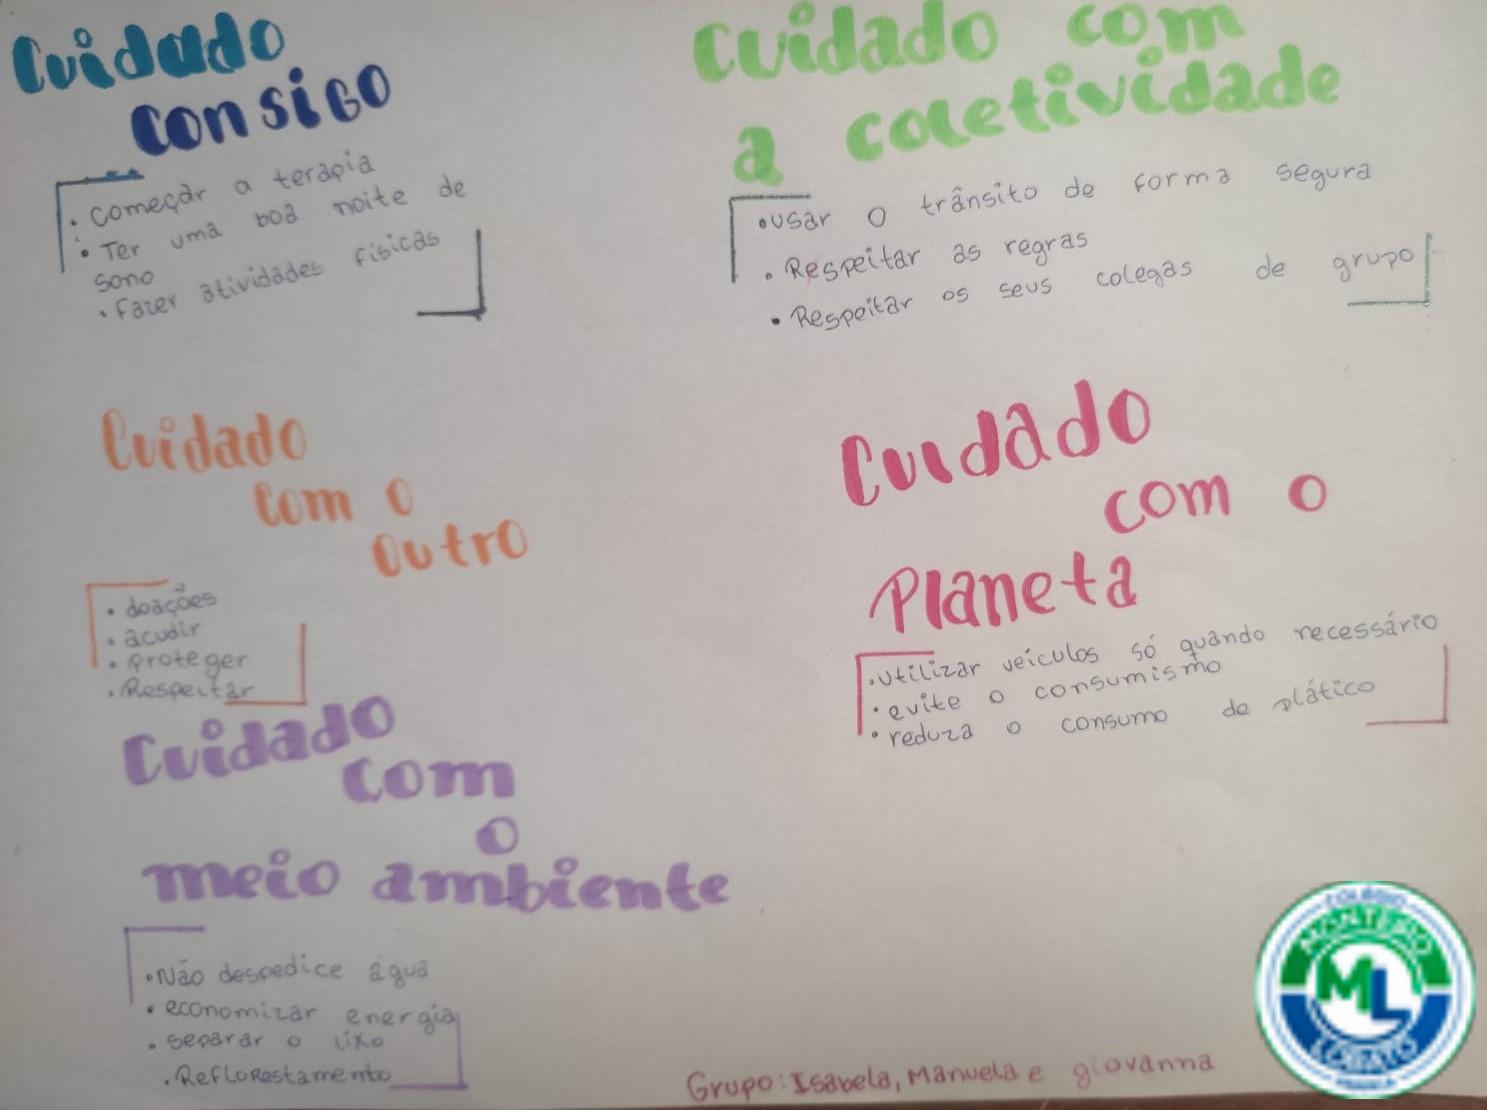 Cuidado
consigo
• Começar a terapia
• Ter uma boa noite de
sono
• Fazer atividades físicas
Cuidado com
a coletividade
• usar o trânsito de forma segura
• Respeitar as regras
• Respeitar os seus colegas de grupo
Cuidado
com o
outro
• doações
• acudir
• proteger
• Respeitar
Cuidado
com o
Planeta
• utilizar veículos só quando necessário
• evite o consumismo
• reduza o consumo de plático
Cuidado
com
o
meio ambiente
• Não despedice água
• economizar energia
• separar o lixo
• Reflorestamento
Grupo: Isabela, Manuela e giovanna
COLÉGIO
MONTEIRO
ML
LOBATO